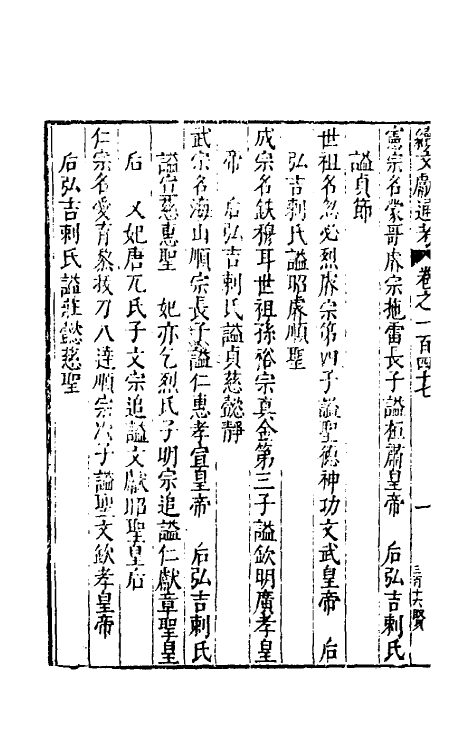 續文獻通考 卷之一百四十七 一
憲宗名蒙哥睿宗拖雷長子謚桓肅皇帝 后弘吉剌氏
謚貞節
世祖名忽必烈睿宗第四子謚聖德神功文武皇帝 后
弘吉剌氏謚昭睿順聖
成宗名鉄穆耳世祖孫裕宗真金第三子謚欽明廣孝皇
帝 后弘吉剌氏謚貞慈懿靜
武宗名海山順宗長子謚仁惠孝宣皇帝 后弘吉剌氏
謚宣慈惠聖 妃亦乞烈氏子明宗追謚仁獻章聖皇
后 又妃唐兀氏子文宗追謚文獻昭聖皇后
仁宗名愛育黎拔力八達順宗次子謚聖文欽孝皇帝
后弘吉剌氏謚莊懿慈聖